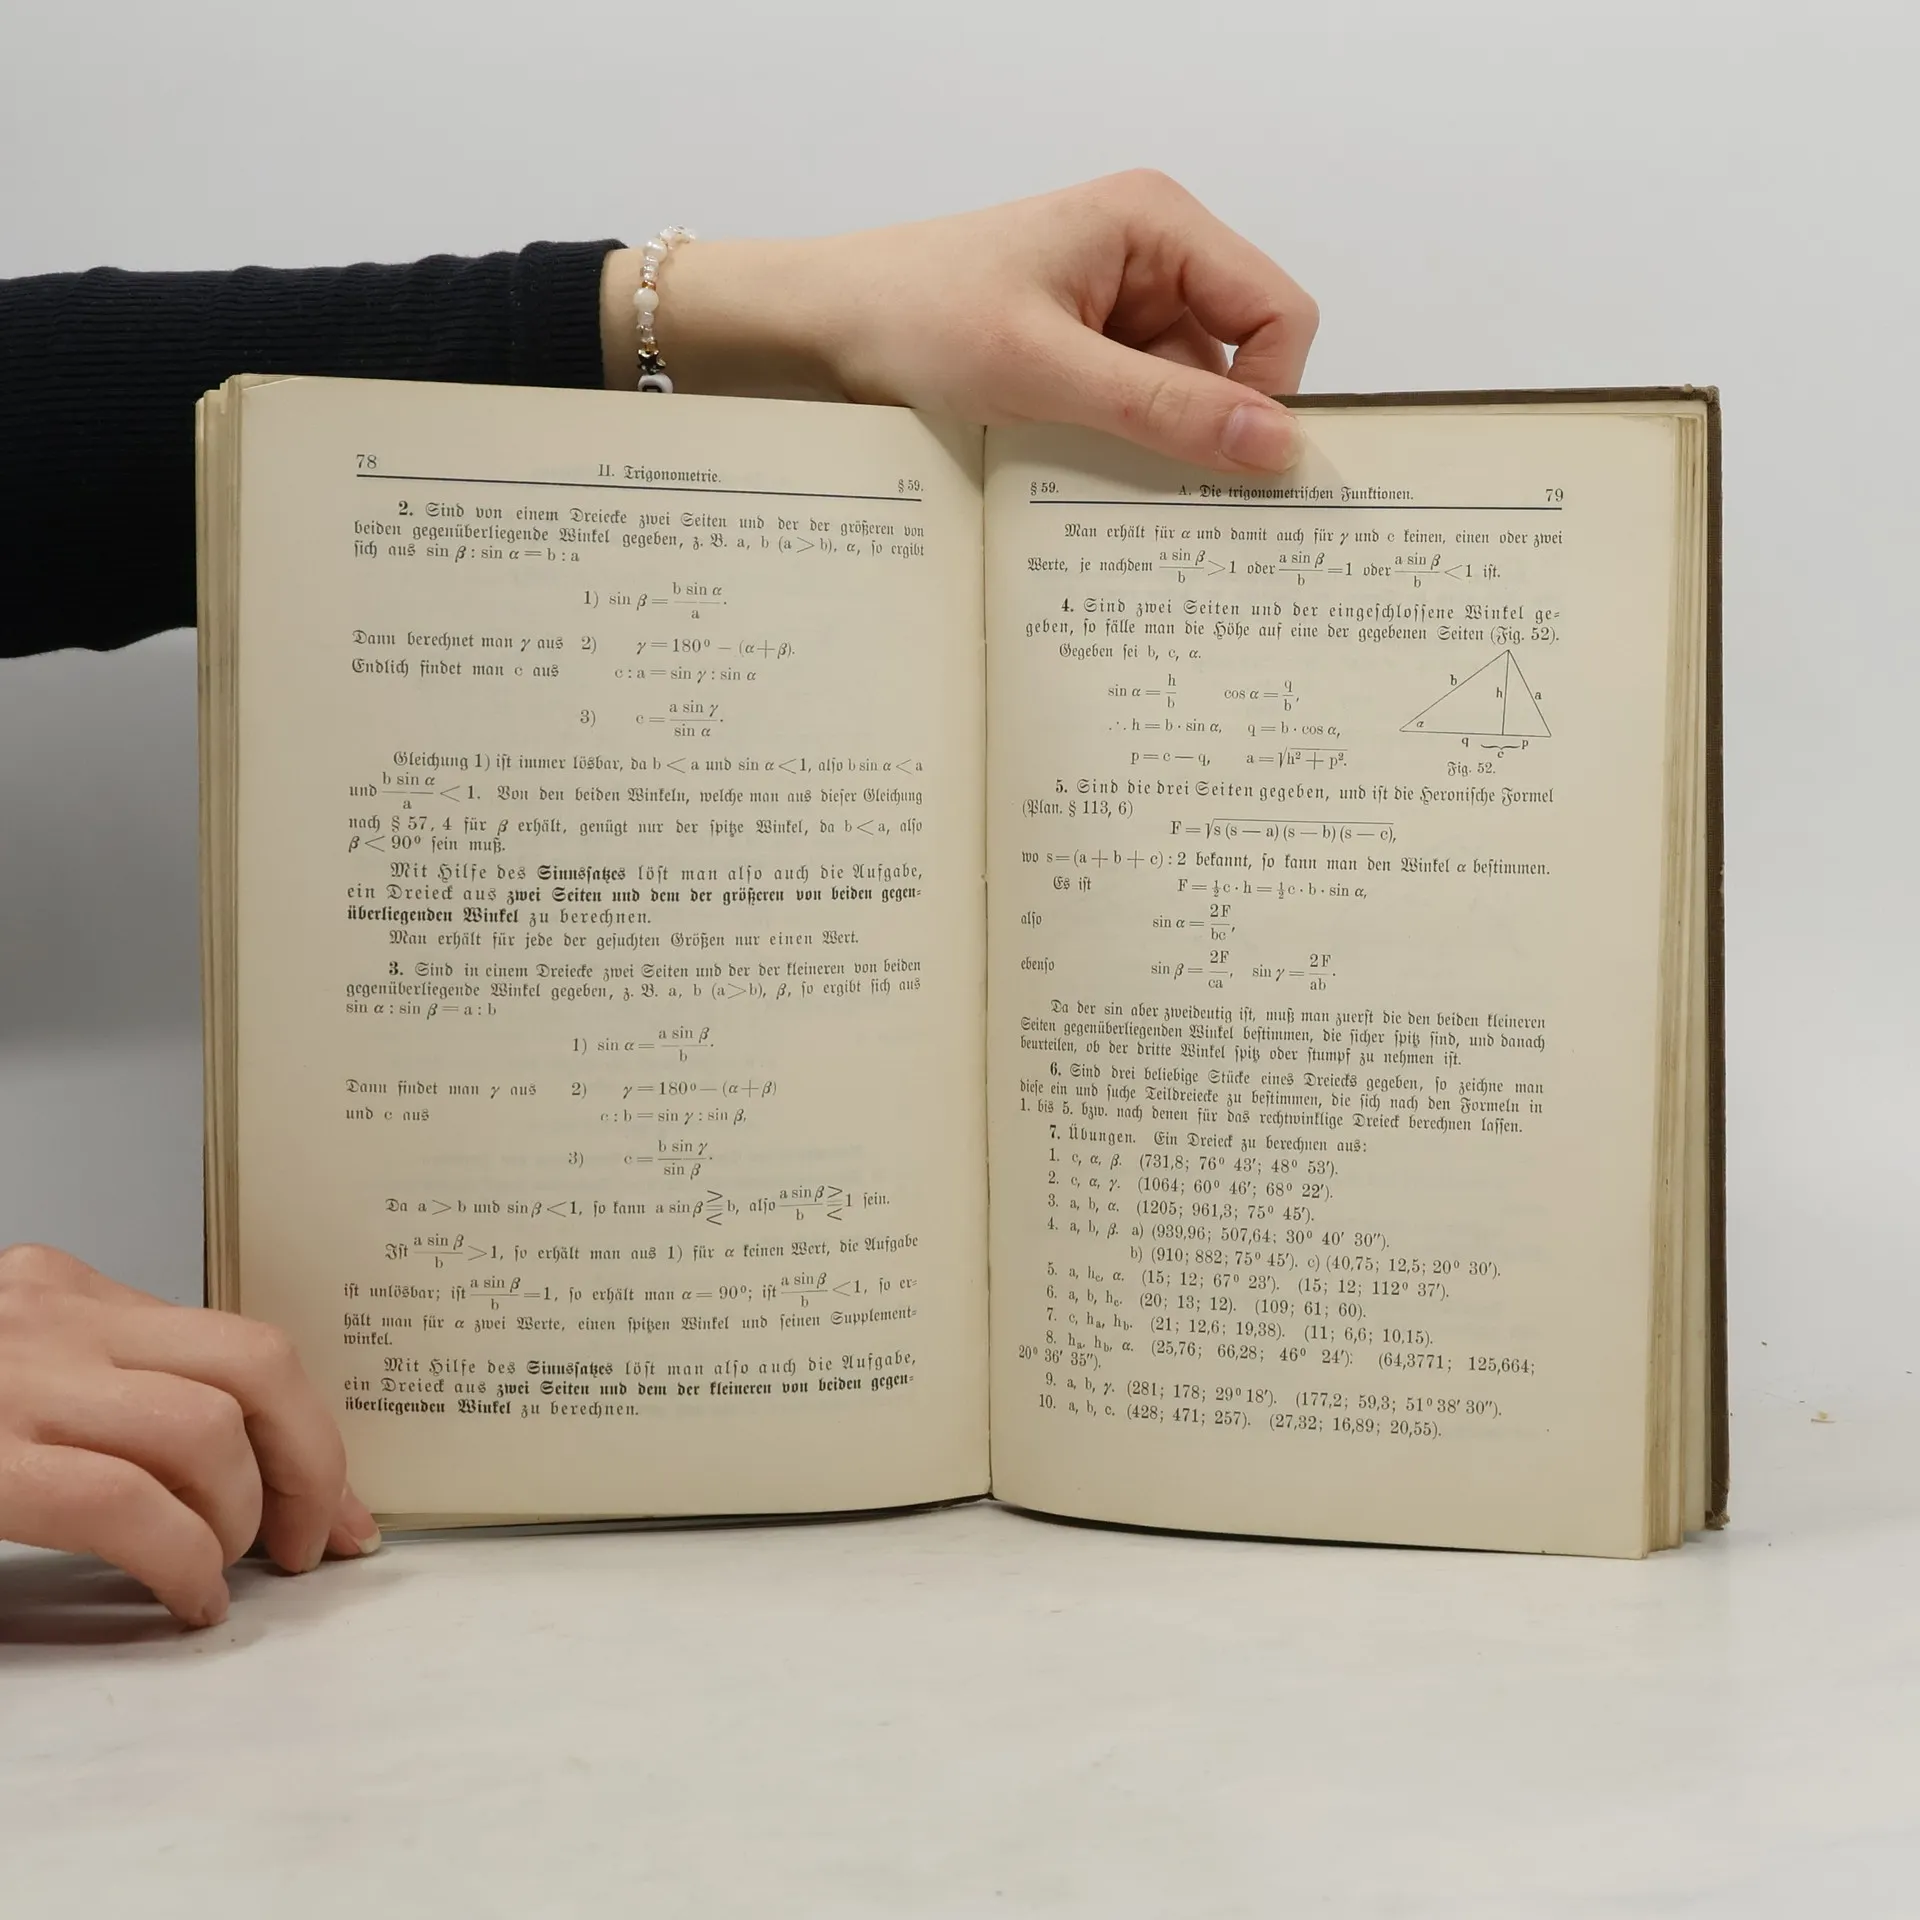 78
II. Trigonometrie.
§ 59.
2. Sind von einem Dreiecke zwei Seiten und der der größeren von
beiden gegenüberliegende Winkel gegeben, z. B. a, b (a > b), α, so ergibt
sich aus sin β : sin α = b : a
1) sin β = b sin α / a.
Dann berechnet man γ aus 2) γ = 180° − (α + β).
Endlich findet man c aus c : a = sin γ : sin α
3) c = a sin γ / sin α.
Gleichung 1) ist immer lösbar, da b < a und sin α < 1, also b sin α < a
und b sin α / a < 1. Von den beiden Winkeln, welche man aus dieser Gleichung
nach § 57, 4 für β erhält, genügt nur der spitze Winkel, da b < a, also
β < 90° sein muß.
Mit Hilfe des Sinussatzes löst man also auch die Aufgabe,
ein Dreieck aus zwei Seiten und dem der größeren von beiden gegen-
überliegenden Winkel zu berechnen.
Man erhält für jede der gesuchten Größen nur einen Wert.
3. Sind in einem Dreiecke zwei Seiten und der der kleineren von beiden
gegenüberliegende Winkel gegeben, z. B. a, b (a > b), β, so ergibt sich aus
sin α : sin β = a : b
1) sin α = a sin β / b.
Dann findet man γ aus 2) γ = 180° − (α + β)
und c aus c : b = sin γ : sin β,
3) c = b sin γ / sin β.
Da a > b und sin β < 1, so kann a sin β ⪌ b, also a sin β / b ⪌ 1 sein.
Ist a sin β / b > 1, so erhält man aus 1) für α keinen Wert, die Aufgabe
ist unlösbar; ist a sin β / b = 1, so erhält man α = 90°; ist a sin β / b < 1, so er-
hält man für α zwei Werte, einen spitzen Winkel und seinen Supplement-
winkel.
Mit Hilfe des Sinussatzes löst man also auch die Aufgabe,
ein Dreieck aus zwei Seiten und dem der kleineren von beiden gegen-
überliegenden Winkel zu berechnen.
§ 59.
A. Die trigonometrischen Funktionen.
79
Man erhält für α und damit auch für γ und c keinen, einen oder zwei
Werte, je nachdem a sin β / b > 1 oder a sin β / b = 1 oder a sin β / b < 1 ist.
4. Sind zwei Seiten und der eingeschlossene Winkel ge-
geben, so fälle man die Höhe auf eine der gegebenen Seiten (Fig. 52).
Gegeben sei b, c, α.
sin α = h / b cos α = q / b,
∴ h = b · sin α, q = b · cos α,
p = c − q, a = √(h² + p²).
b h a
α
q p
c
Fig. 52.
5. Sind die drei Seiten gegeben, und ist die Heronische Formel
(Plan. § 113, 6)
F = √(s (s − a) (s − b) (s − c)),
wo s = (a + b + c) : 2 bekannt, so kann man den Winkel α bestimmen.
Es ist F = ½ c · h = ½ c · b · sin α,
also sin α = 2F / bc,
ebenso sin β = 2F / ca, sin γ = 2F / ab.
Da der sin aber zweideutig ist, muß man zuerst die den beiden kleineren
Seiten gegenüberliegenden Winkel bestimmen, die sicher spitz sind, und danach
beurteilen, ob der dritte Winkel spitz oder stumpf zu nehmen ist.
6. Sind drei beliebige Stücke eines Dreiecks gegeben, so zeichne man
diese ein und suche Teildreiecke zu bestimmen, die sich nach den Formeln in
1. bis 5. bzw. nach denen für das rechtwinklige Dreieck berechnen lassen.
7. Übungen. Ein Dreieck zu berechnen aus:
1. c, α, β. (731,8; 76° 43′; 48° 53′).
2. c, α, γ. (1064; 60° 46′; 68° 22′).
3. a, b, α. (1205; 961,3; 75° 45′).
4. a, b, β. a) (939,96; 507,64; 30° 40′ 30″).
b) (910; 882; 75° 45′). c) (40,75; 12,5; 20° 30′).
5. a, hc, α. (15; 12; 67° 23′). (15; 12; 112° 37′).
6. a, b, hc. (20; 13; 12). (109; 61; 60).
7. c, ha, hb. (21; 12,6; 19,38). (11; 6,6; 10,15).
8. ha, hb, α. (25,76; 66,28; 46° 24′): (64,3771; 125,664;
20° 36′ 35″).
9. a, b, γ. (281; 178; 29° 18′). (177,2; 59,3; 51° 38′ 30″).
10. a, b, c. (428; 471; 257). (27,32; 16,89; 20,55).